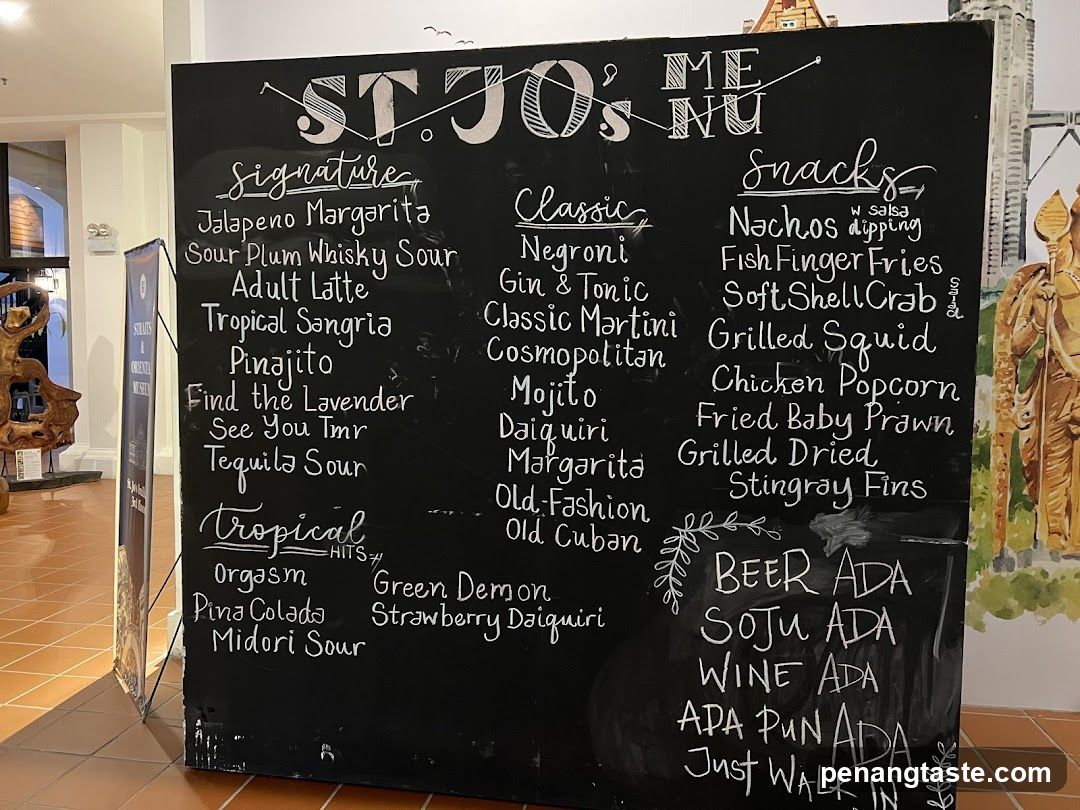 ST. JO's MENU
Signature
Jalapeno Margarita
Sour Plum Whisky Sour
Adult Latte
Tropical Sangria
Pinajito
Find the Lavender
See You Tmr
Tequila Sour
Tropical
HITS
Orgasm
Pina Colada
Midori Sour
Green Demon
Strawberry Daiquiri
Classic
Negroni
Gin & Tonic
Classic Martini
Cosmopolitan
Mojito
Daiquiri
Margarita
Old-Fashion
Old Cuban
Snacks
Nachos w salsa dipping
Fish Finger Fries
Soft Shell Crab
Grilled Squid
Chicken Popcorn
Fried Baby Prawn
Grilled Dried
Stingray Fins
BEER ADA
SOJU ADA
WINE ADA
APA PUN ADA
Just WALK IN
STRAITS
&
ORIENTAL
MUSEUM
penangtaste.com